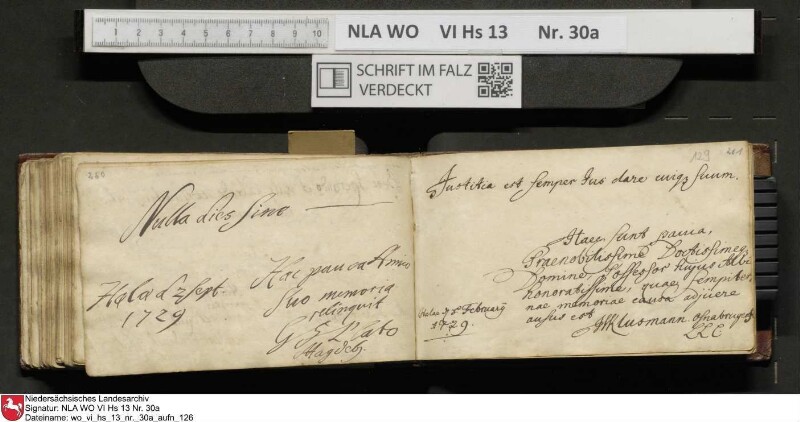 1 2 3 4 5 6 7 8 9 10
NLA WO VI Hs 13 Nr. 30a
SCHRIFT IM FALZ
VERDECKT
260
Nulla dies sine ———
Hala d Sept.
1729
Hoc pauca Amico
suo memoria
relinquit
G Plato
Magdeb.
129 261
Justitia est semper Jus dare cuiq; suum.
Haec sunt pauca,
Praenobilissime Doctissimeq;
Domine, Possessor hujus Albi
honoratissime, quae sempiter,
nae memoriae causa adjicere
ausus est
Halae d Februarij
1729.
Klusmann. Osnabrug
LLC
Niedersächsisches Landesarchiv
Signatur: NLA WO VI Hs 13 Nr. 30a
Dateiname: wo_vi_hs_13_nr._30a_aufn_126